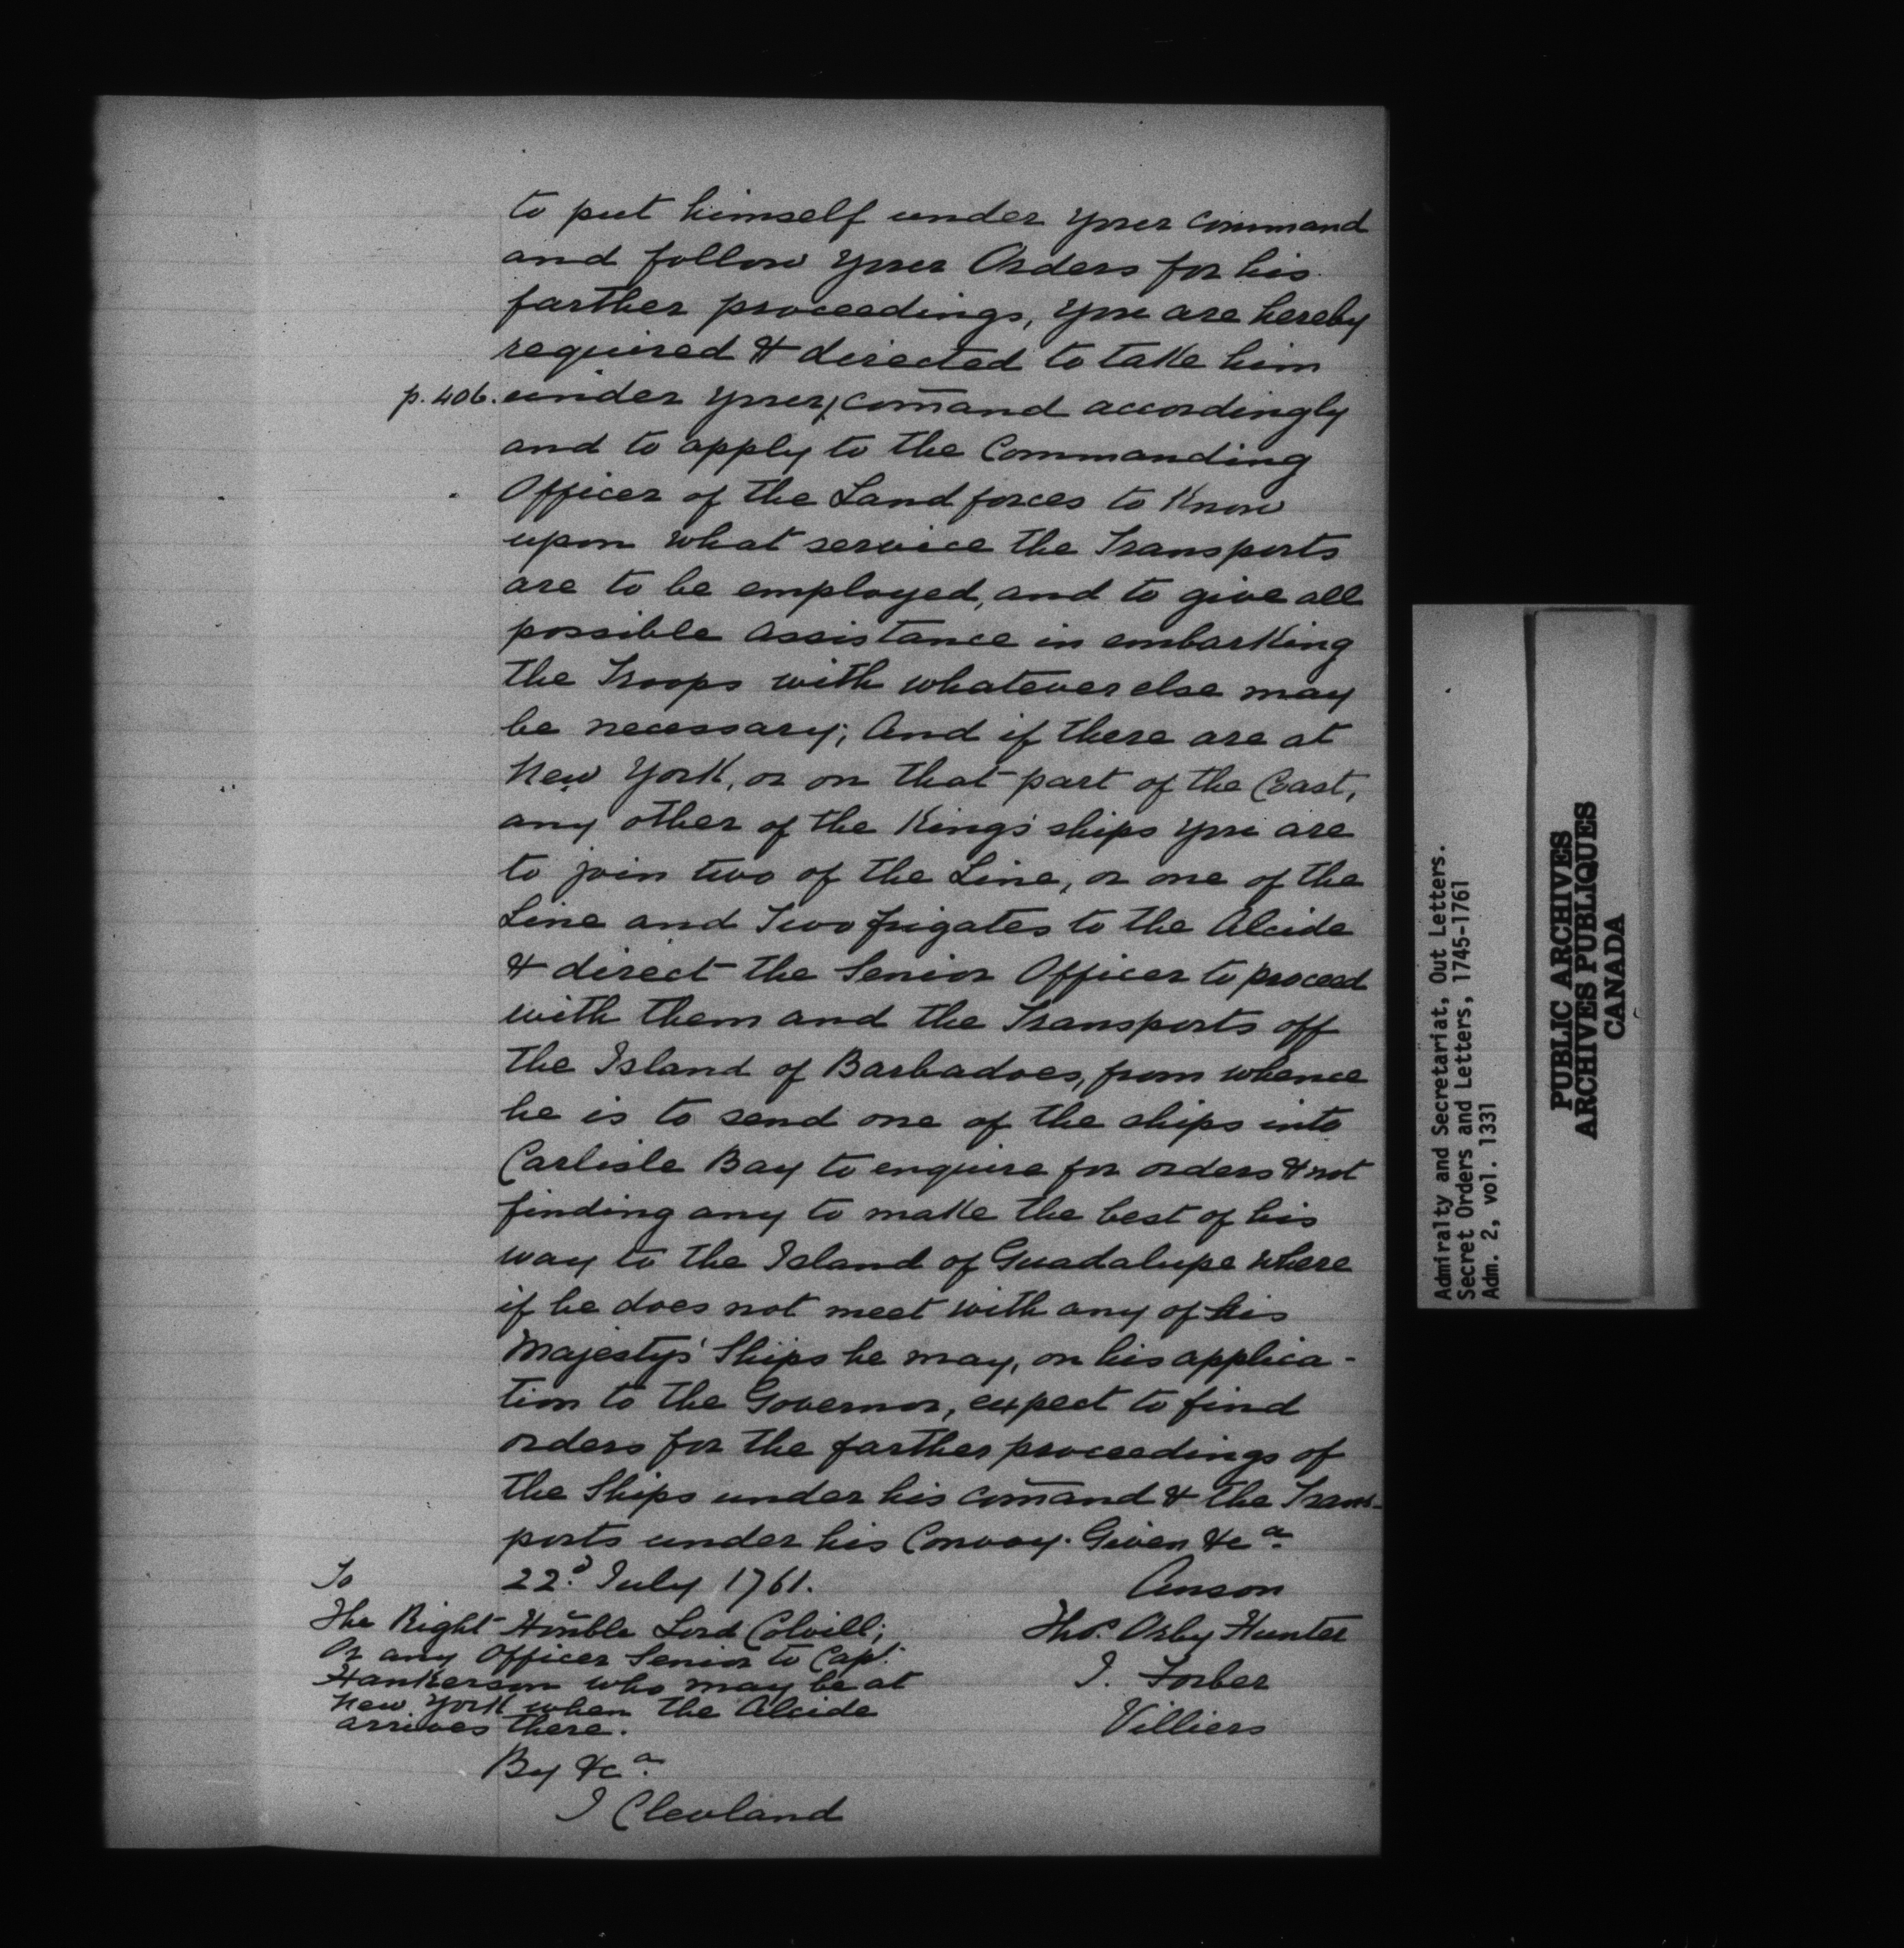 to put himself under your command
and follow your Orders for his
farther proceedings, you are hereby
required & directed to take him
p. 406. under your/com̄and accordingly
and to apply to the Commanding
Officer of the Land forces to know
upon what service the Transports
are to be employed, and to give all
possible assistance in embarking
the Troops with whatever else may
be necessary; And if there are at
New York, or on that part of the Coast,
any other of the King's ships you are
to join two of the Line, or one of the
Line and Two frigates to the Alcide
& direct the Senior Officer to proceed
with them and the Transports off
the Island of Barbadoes, from whence
he is to send one of the ships into
Carlisle Bay to enquire for orders & not
finding any to make the best of his
way to the Island of Guadalupe where
if he does not meet with any of his
Majesty's Ships he may, on his applica-
tion to the Governor, expect to find
orders for the farther proceedings of
the Ships under his com̄and & the Trans-
ports under his Convoy. Given &c.ª
22.ᵈ July 1761.
Anson
Tho.ˢ Orby Hunter
J. Forbes
Villiers
To
The Right Hon̄ble Lord Colvill;
Or any Officer Senior to Cap.ᵗ
Hankerson who may be at
New York when the Alcide
arrives there.
By &c.ª
J Clevland
Admiralty and Secretariat, Out Letters.
Secret Orders and Letters, 1745-1761
Adm. 2, vol. 1331
PUBLIC ARCHIVES
ARCHIVES PUBLIQUES
CANADA